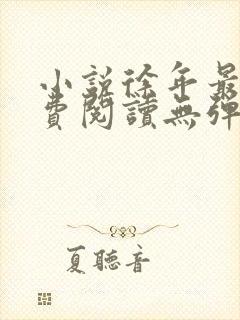 小說徐年最
費閱讀無彈
夏聽音